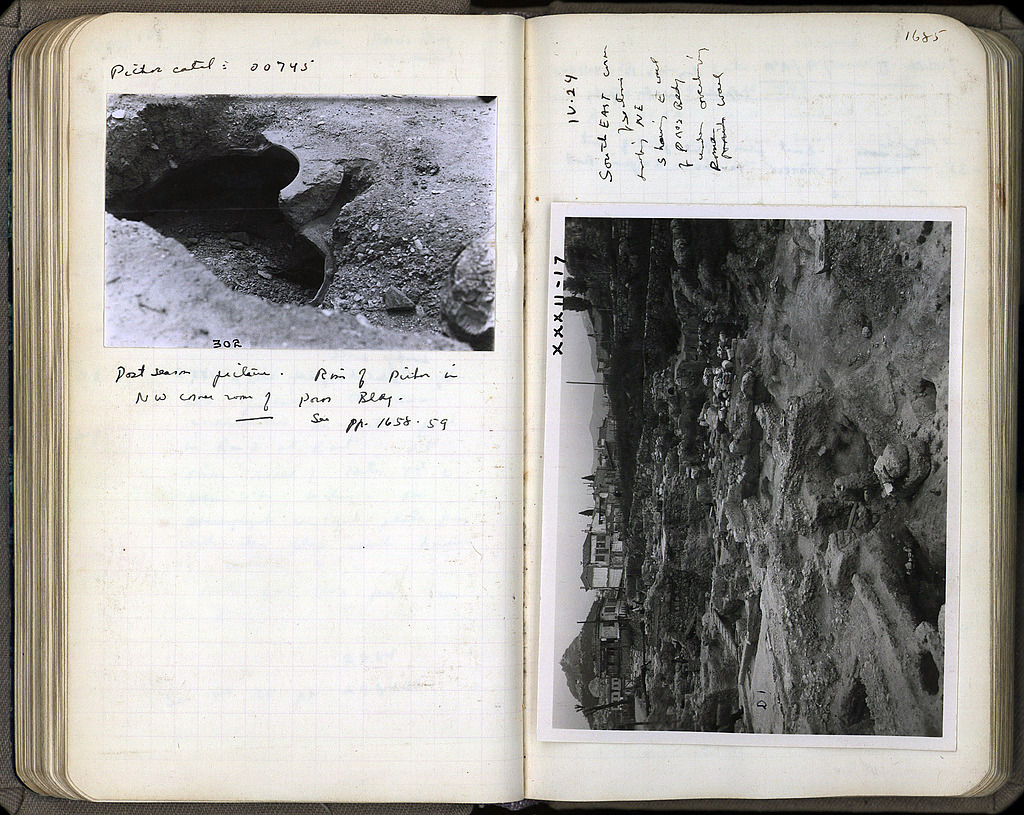 Pithos catal: 00745
30R
Post season picture. Rim of Pithos in
NW corner room of Poros Bldg.
See pp. 1658-59
1685
IV-24
South EAST corner
looking NE
showing E wall
of Poros Bldg
under overlying
Roman
wall
XXXII-17
D1